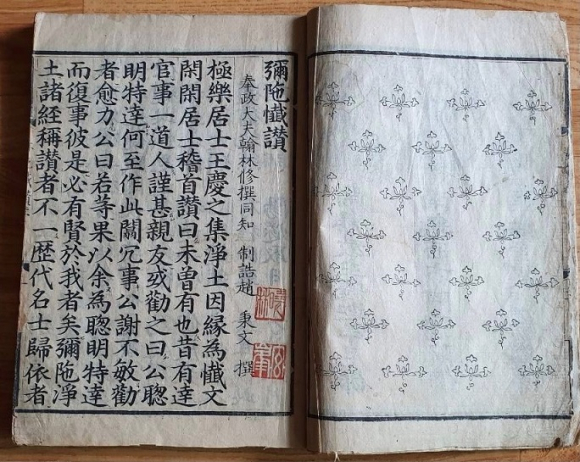 彌陁懺讚
奉政大夫翰林修撰同知 制誥趙 秉文 撰
極樂居士王慶之集淨土因緣為懺文
閑閑居士稽首讚曰未曾有也昔有達
官事一道人謹甚親友或勸之曰公聦
明特達何至作此闒冗事公謝不敏勸
者愈力公曰若等果以余為聦明特達
而復事彼是必有賢於我者矣彌陁淨
土諸經稱讚者不一歷代名士歸依者